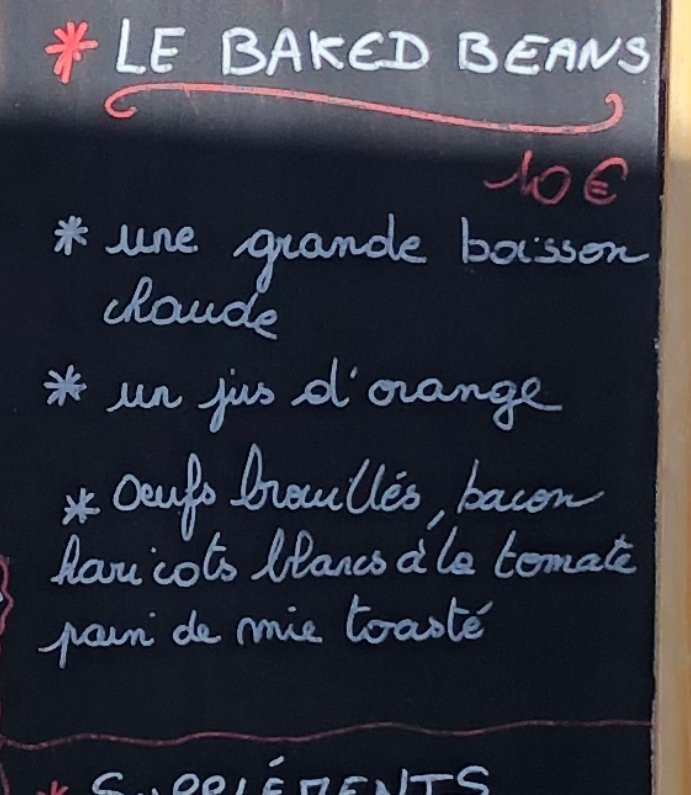 * LE BAKED BEANS
10€
* une grande boisson
chaude
* un jus d'orange
* Oeufs brouillés, bacon
haricots blancs à la tomate
pain de mie toasté
* SUPPLÉMENTS